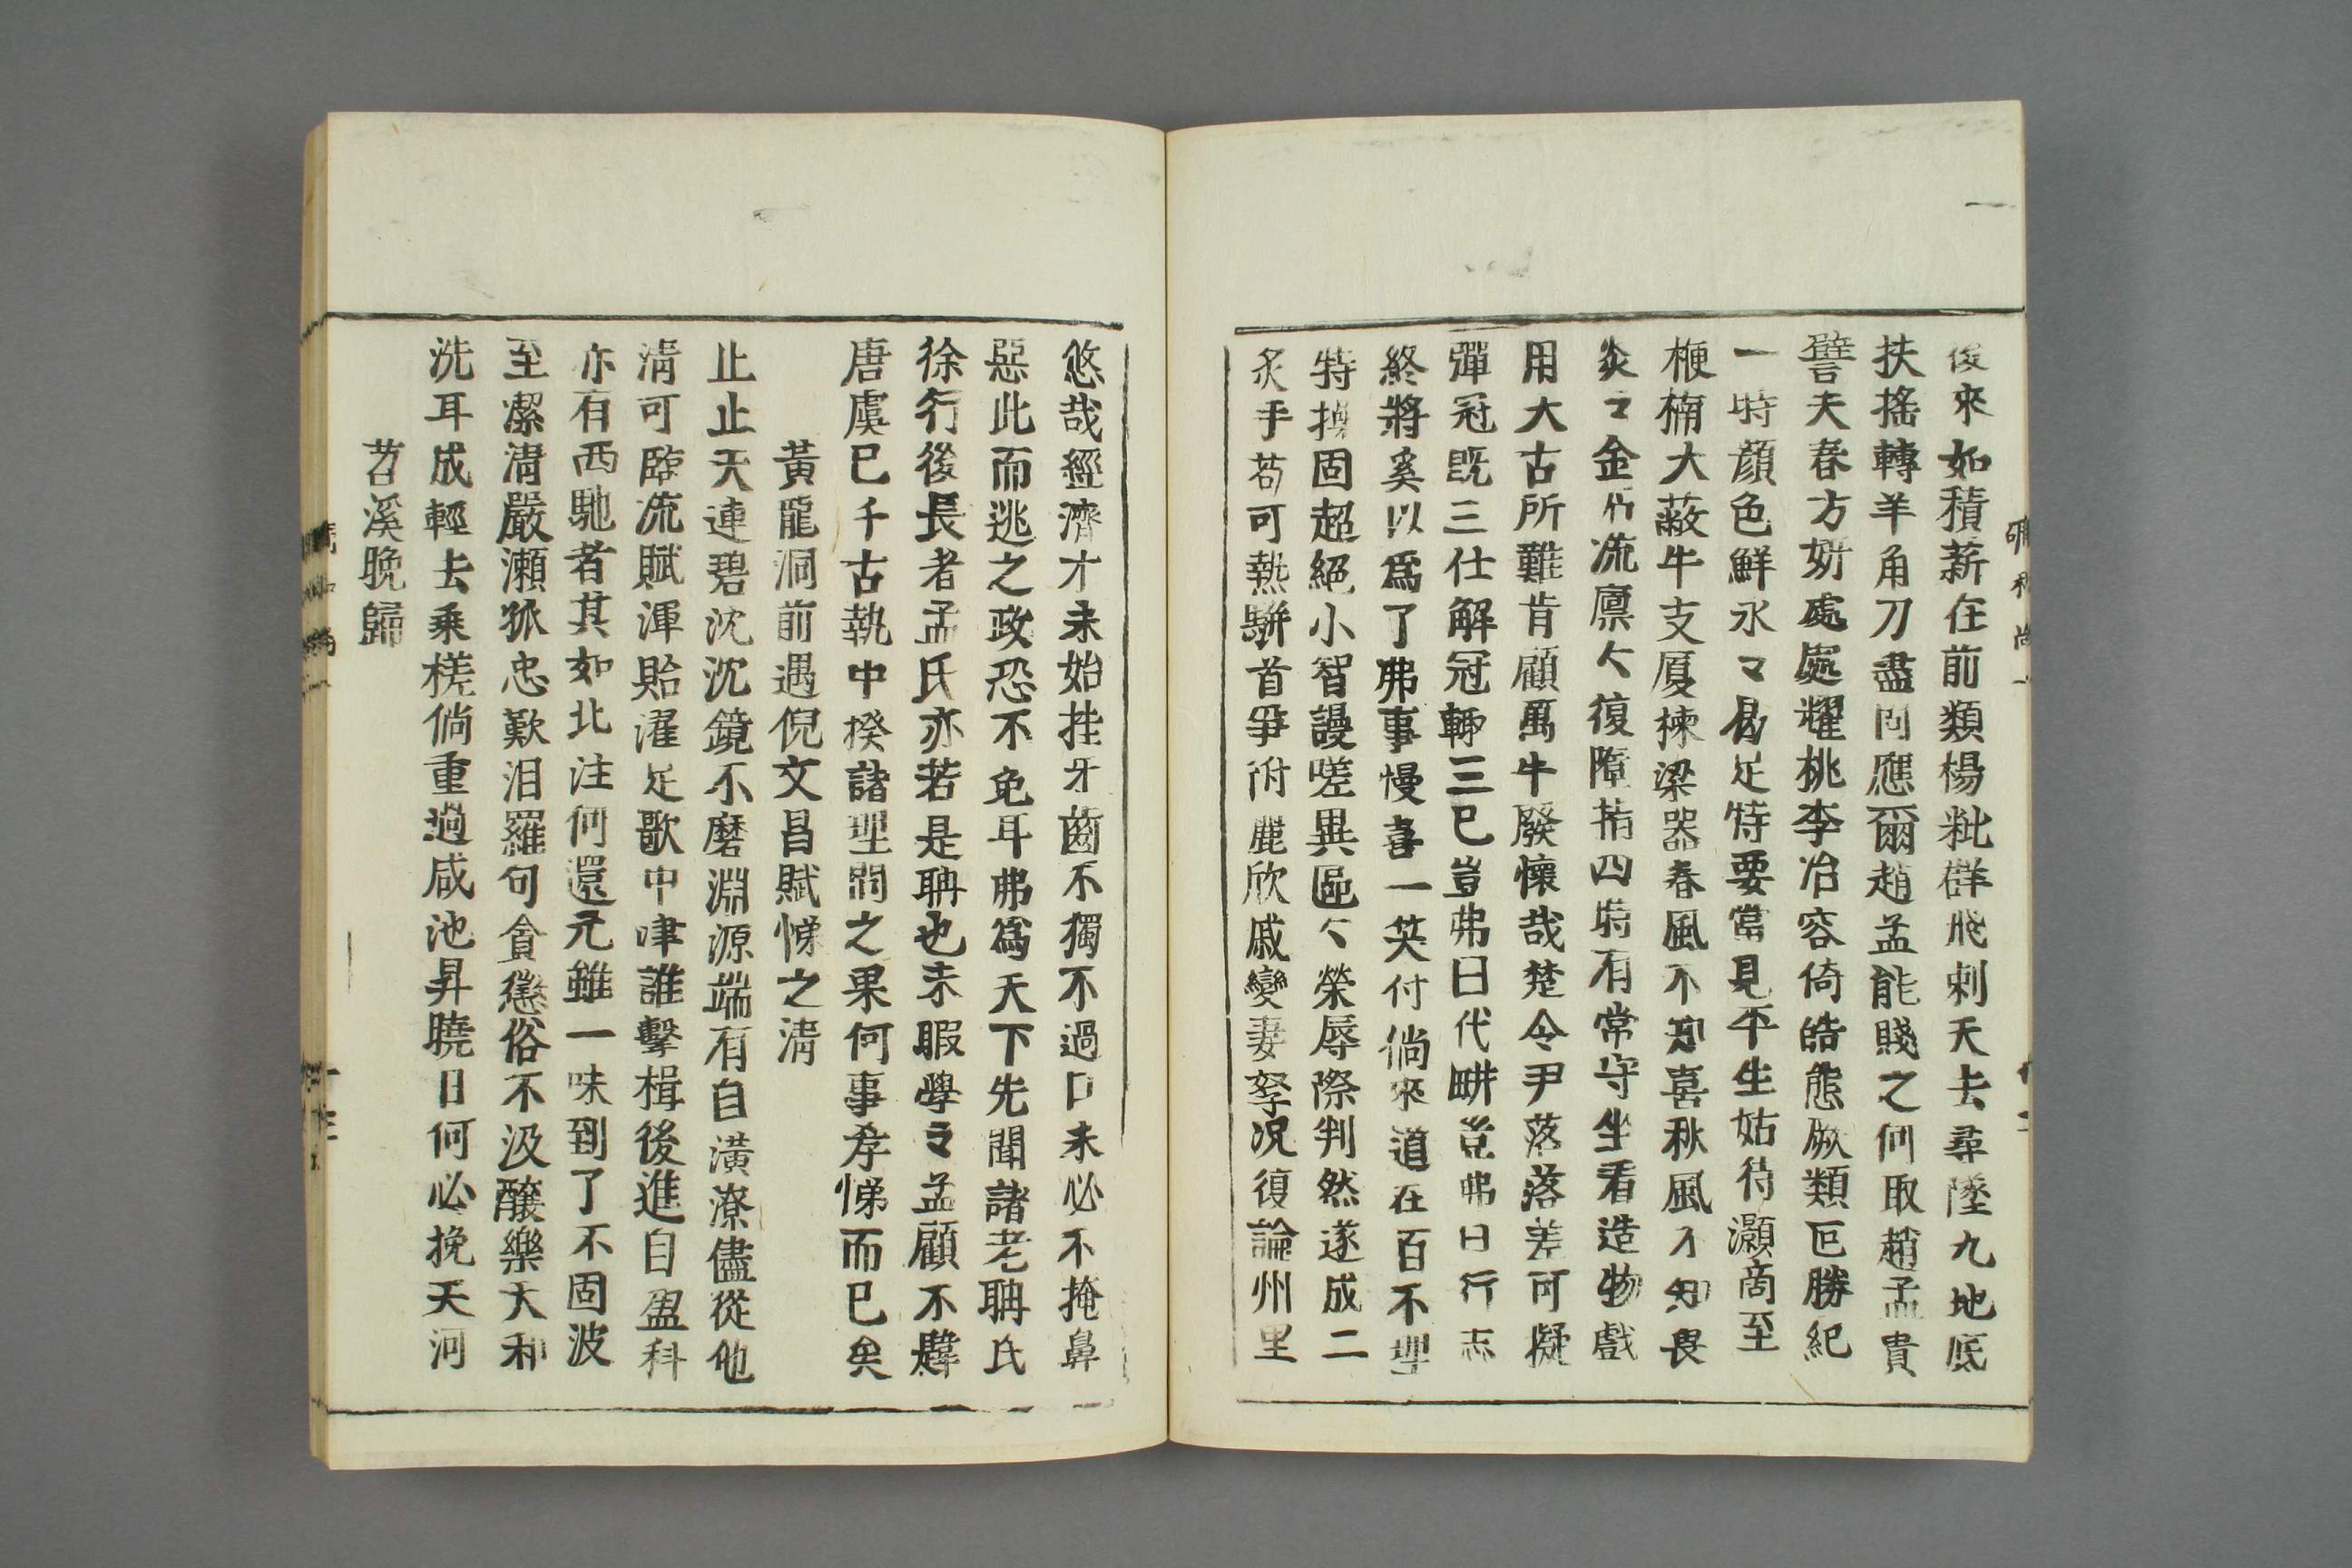 後來如積薪在前類楊粃群飛刺天去尋墜九地底
扶搖轉羊角刀盡同應爾趙孟能賤之何取趙孟貴
譬夫春方妍處處耀桃李冶容倚皓態厥類叵勝紀
一時顔色鮮永〻曷足恃要當見平生姑待灝商至
梗楠大蔽牛支厦棟梁器春風不知喜秋風不知畏
炎〻金石流凛〻復隳指四時有常守坐看造物戲
用大古所難肯顧萬牛廢懷哉楚令尹落落差可擬
彈冠既三仕解冠輙三已豈弗曰代畊豈弗曰行志
終將奚以爲了弗事慢喜一笑付倘來道在百不理
特操固超絕小智謾嗟異區〻榮辱際判然遂成二
炙手苟可熱駢首爭附麗欣戚變妻孥况復論州里
悠哉經濟才未始挂牙齒不獨不過口未必不掩鼻
惡此而逃之政恐不免耳弗爲天下先聞諸老聃氏
徐行後長者孟氏亦若是聃也未暇學〻孟顧不韙
唐虞已千古執中揆諸理問之果何事孝悌而已矣
黃龍洞前遇倪文昌賦悌之清
止止天連碧沈沈鏡不磨淵源端有自潢潦儘從他
清可臨流賦渾貽濯足歌中啡誰擊楫後進自盈科
亦有西馳者其如北注何還元雖一味到了不固波
至潔清嚴瀬孤忠歎汨羅句貪懲俗不汲釀樂天和
洗耳成輕去乘槎倘重過咸池昇曉日何必挽天河
苕溪晚歸